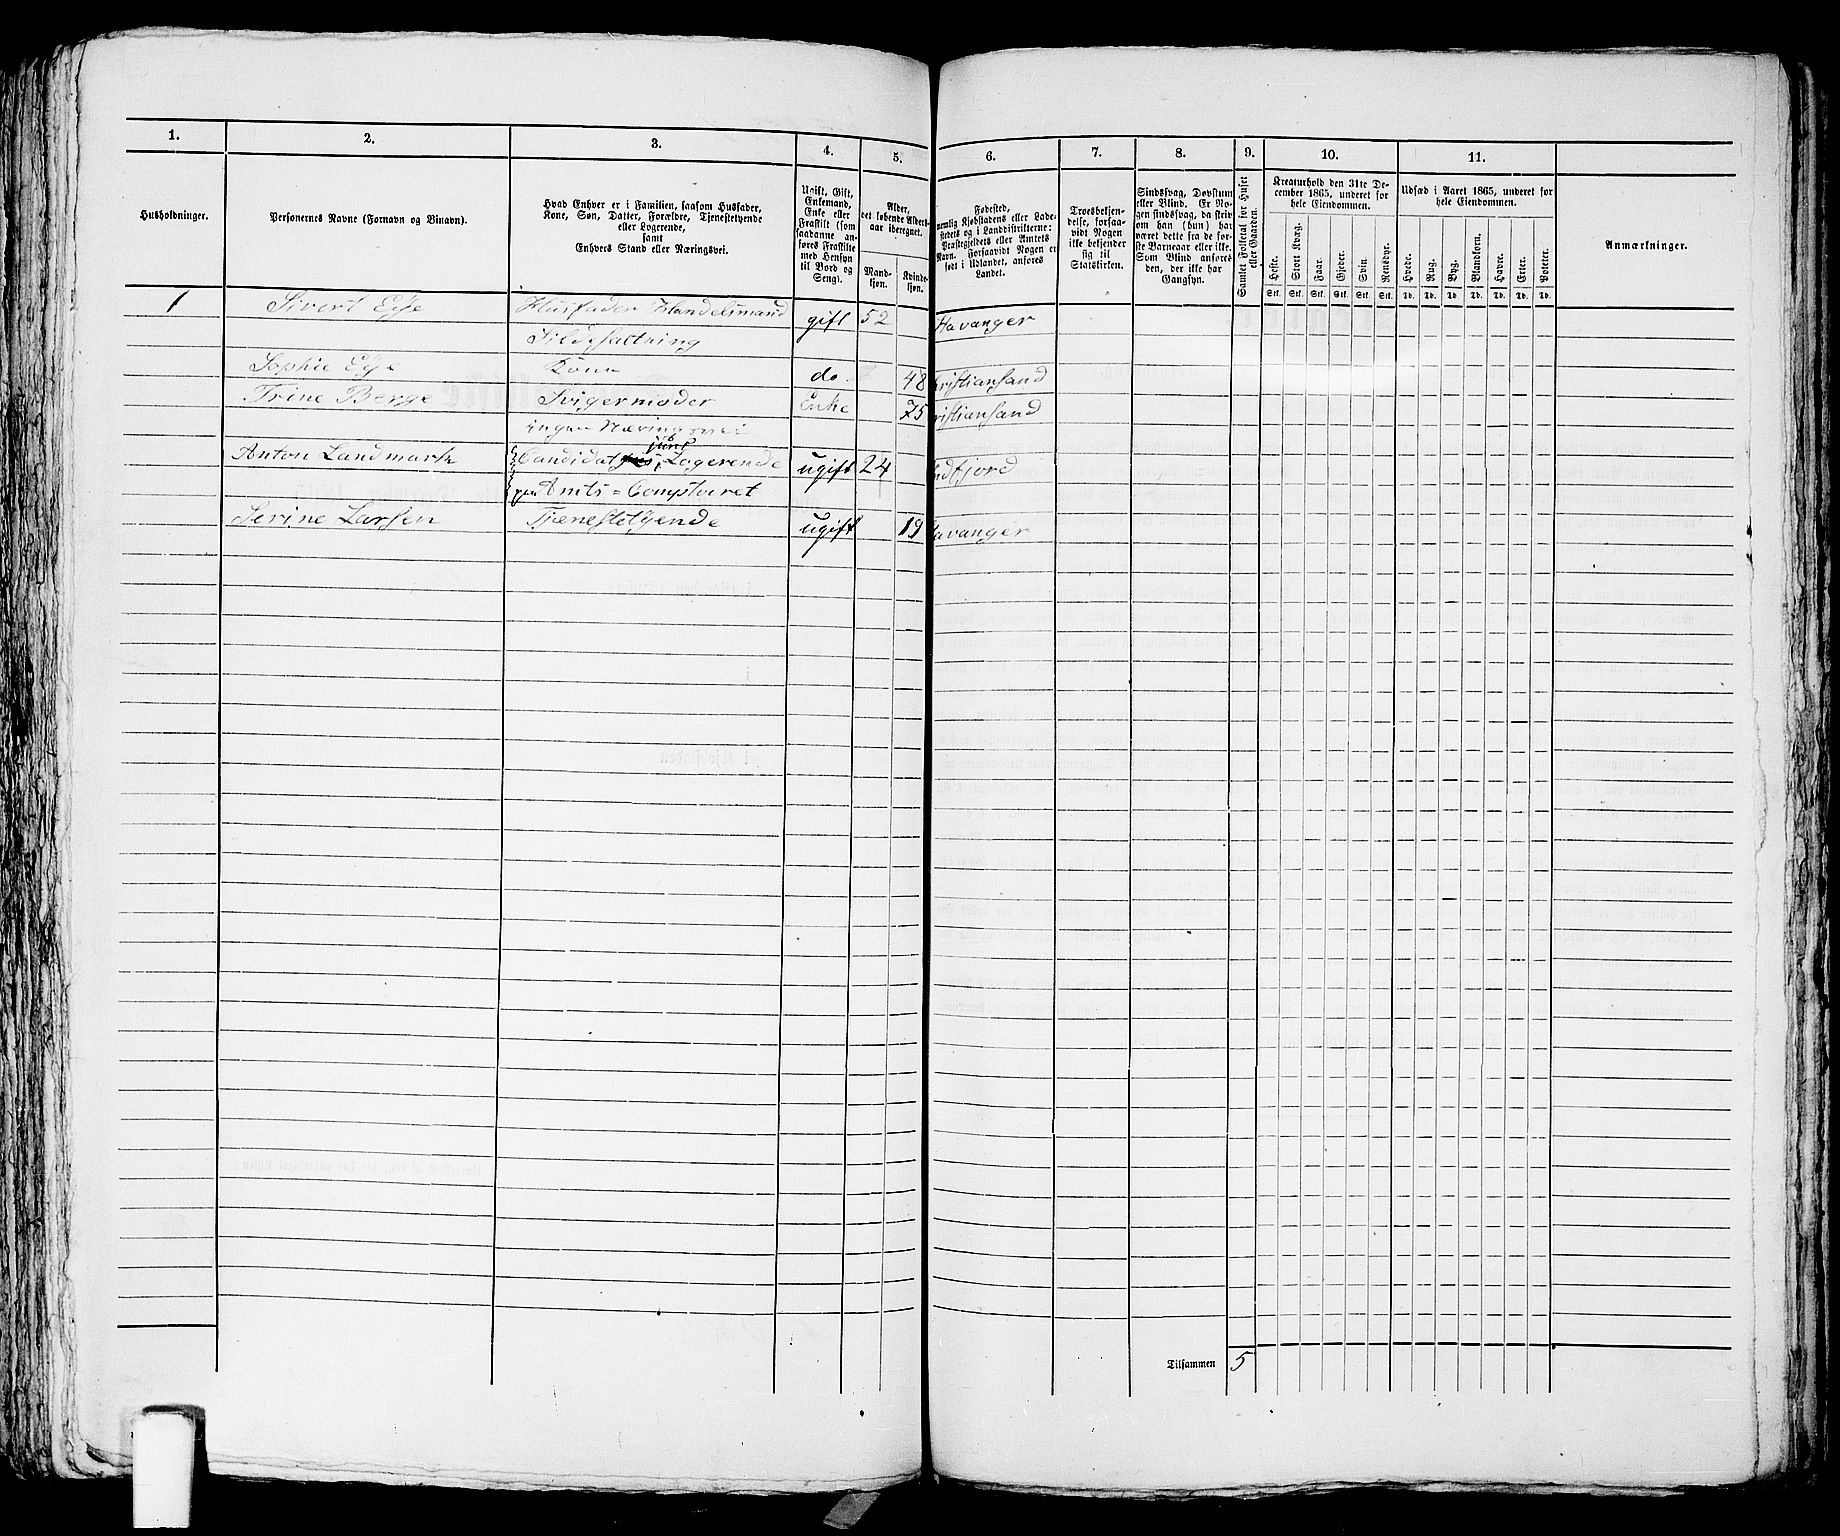 1. 2. 3. 4. 5. 6. 7. 8. 9. 10. 11.
Husholdninger.
Personernes Navne (Fornavn og Binavn).
Hvad Enhver er i Familien, saasom Husfader,
Kone, Søn, Datter, Forældre, Tjenestetyende
eller Logerende,
samt
Enhvers Stand eller Næringsvei.
Ugift, Gift,
Enkemand,
Enke eller
Fraskilt (som
saadanne an-
føres Fraskilte
med Hensyn
til Bord og
Seng).
Alder,
det løbende Alders-
aar iberegnet.
Mand-
kjøn.
Kvinde-
kjøn.
Fødested,
nemlig Kjøbstadens eller Lade-
stedets og i Landdistrikterne:
Præstegjeldets eller Amtets
Navn. Forsaavidt Nogen er
født i Udlandet, anføres
Landet.
Troesbekjen-
delse, forsaa-
vidt Nogen
ikke bekjender
sig til
Statskirken.
Sindssvag, Døvstum
eller Blind. Er No-
gen sindssvag, da skriv
om han (hun) har
været dette fra de før-
ste Barneaar eller ikke.
Som Blind anføres
den, der ikke har
Gangsyn.
Samlet Folketal for Huset
eller Gaarden.
Kreaturhold den 31te De-
cember 1865, underet for
hele Eiendommen.
Heste. Stort Kvæg. Faar. Gjeder. Svin. Rensdyr.
Stk. Stk. Stk. Stk. Stk. Stk.
Udsæd i Aaret 1865, underet for
hele Eiendommen.
Hvede. Rug. Byg. Blandkorn. Havre. Erter. Poteter.
Td. Td. Td. Td. Td. Td. Td.
Anmærkninger.
1 Sivert Eje Husfader Handelsmand gift 52 Stavanger
Sildesaltning
Sophie Eje Kone do 48 Christiansand
Trine Berge Svigermoder Enke 75 Christiansand
ingen Næringsvei
Anton Landmark Candidat juris, Logerende ugift 24 Søndfjord
paa Amts=Comptoiret
Serine Larsen Tjenestetyende ugift 19 Stavanger
Tilsammen 5